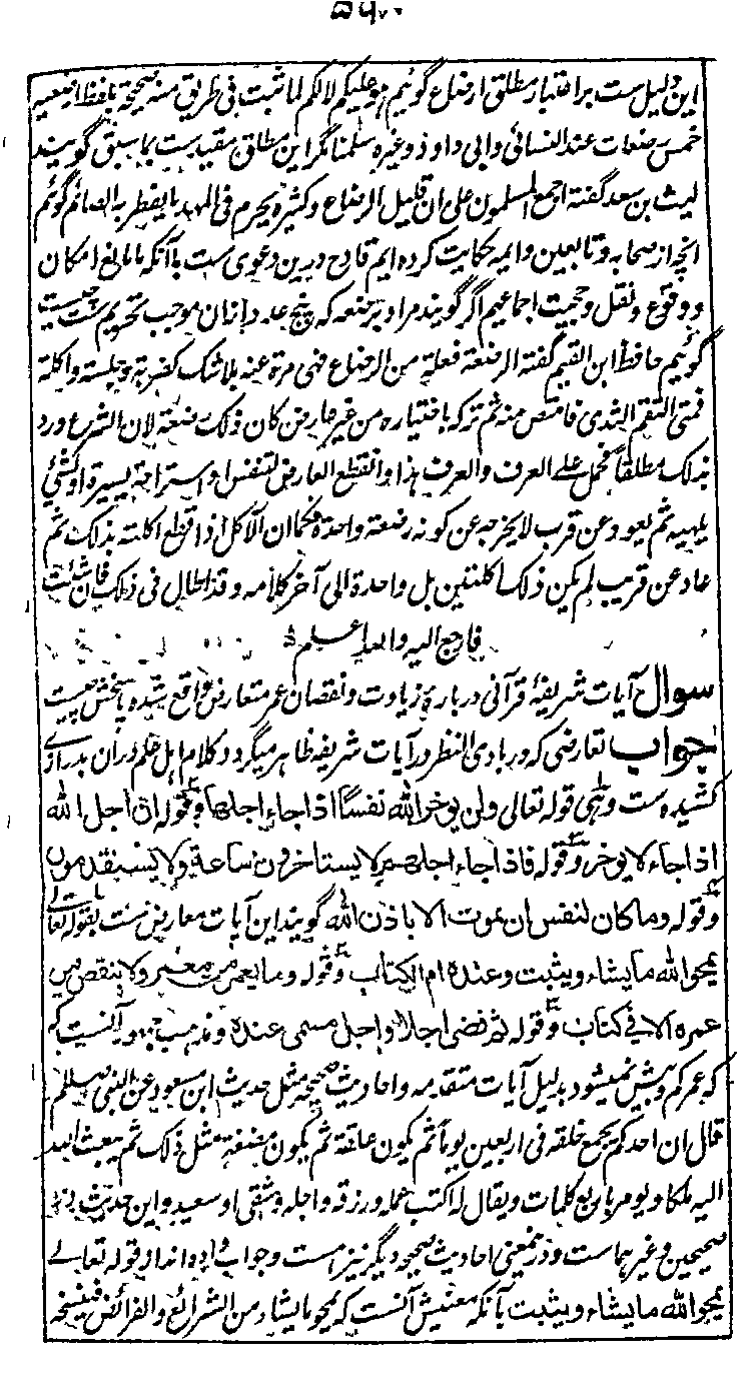 ۵۶۰
این دلیل ست بر اعتبار مطلق ارضاع گوئیم هو علیکم لا لکم لما ثبت فی طریق منه صحیحة بلفظ ارضعیه
خمس رضعات عند النسائی وابی داؤد وغیره سلمنا مگر این مطلق مقید ست بما سبق گویند
لیث بن سعد گفته اجمع المسلمون علی ان قلیل الرضاع وکثیره یحرم فی المهد ما یفطر به الصائم گوئم
انچه از صحابه وتابعین وایمه حکایت کرده ایم قادح درین دعوی ست باآنکه ما مانع امکان
ووقوع ونقل وحجیت اجماعیم اگر گویند مراد برضعه که پنج عدد ازان موجب تحریم ست چیست
گوئیم حافظ ابن القیم گفته الرضعة فعلة من الرضاع فهی مرة منه بلا شک کضربة وجلسة واکلة
فمتی التقم الثدی فامتص منه ثم ترکه باختیاره من غیر عارض کان ذلک رضعة لان الشرع ورد
بذلک مطلقاً فحمل علی العرف والعرف هذا والقطع العارض لتنفس او استراحة یسیرة او لشئ
یلهیه ثم یعود عن قرب لا یخرجه عن کونه رضعة واحدة فکما ان الآکل اذا قطع اکلته بذلک ثم
عاد عن قریب لم یکن ذلک اکلتین بل واحدة الی آخر کلامه وقد اطال فی ذلک فان شئت
فارجع الیه والله اعلم
سوال آیات شریفهٔ قرآنی دربارهٔ زیادت ونقصان عمر متعارض واقع شده پاسخش چیست
جواب تعارضی که در بادی النظر در آیات شریفه ظاهر میگردد کلام اهل علم دران بدرازی
کشیده ست وهی قوله تعالی ولن یوخر الله نفسًا اذا جاء اجلها وقوله ان اجل الله
اذا جاء لا یوخر وقوله فاذا جاء اجلهم لا یستاخرون ساعة ولا یستقدمون
وقوله وما کان لنفس ان تموت الا باذن الله گویند این آیات معارض ست بقوله تعالی
یمحو الله ما یشاء ویثبت وعنده ام الکتاب وقوله وما یعمر من معمر ولا ینقص من
عمره الا فی کتاب وقوله ثم قضی اجلا واجل مسمی عنده ومذهب جمهور آنست که
که عمر کم وبیش نمیشود بدلیل آیات متقدمه واحادیث صحیحه مثل حدیث ابن مسعود عن النبی صللم
قال ان احدکم یجمع خلقه فی اربعین یوماً ثم یکون علقة ثم یکون مضغة مثل ذلک ثم یبعث الله
الیه ملکا ویومر باربع کلمات ویقال له اکتب عمله ورزقه واجله وشقی او سعید واین حدیث در
صحیحین وغیر هما ست ودرین معنی احادیث صحیحه دیگر نیز آمده ست وجواب داده اند از قوله تعالی
یمحو الله ما یشاء ویثبت بآنکه معنیش آنست که یمحو ما یشاء من الشرائع والفرائض فینسخه